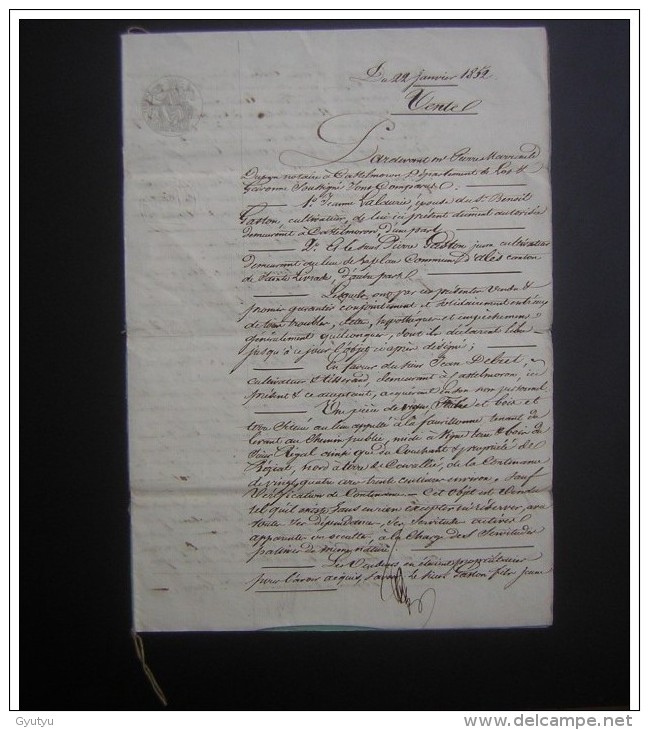 Du 22 janvier 1852
Vente
Pardevant me Pierre
notaire à Castelmoron Département de Lot &
Garonne Soussigné Sont Comparus
1° Jeanne Lalaurie, épouse du Sr. Benoit
Gaston, cultivateur, de lui ici présent dument autorisée
demeurant à Castelmoron, d'une part
2° Et le sieur Pierre Gaston jeune cultivateur
demeurant au lieu de Laplau Commune d'Alès canton
de Sainte Livrade, d'autre part
Lesquels ont par ces présentes Vendu &
promis garantir conjointement et solidairement entr'eux
de tous troubles, dettes, hypothèques et empêchemens
généralement quelconques, dont ils déclarent libre
jusqu'à ce jour l'objet ci après désigné ;
En faveur du sieur Jean
cultivateur & tisserand, demeurant à Castelmoron, ici
présent & ce acceptant, acquérant en son nom personnel
Une pièce de vigne et bois et
terre située au lieu appellé à la tenant du
levant au Chemin public, midi à Vigne terre & bois du
Sieur Régal du Couchant & propriété de
nord à terre de de la Contenance
de vingt quatre are trente centiares environ, sauf
Vérification de Contenance - Cet objet est vendu
tel qu'il existe sans en rien excepter ni réserver, avec
toutes ses dépendances, ses servitudes actives
apparentes ou occultes, à la Charge des Servitudes
passives de même nature
Les Vendeurs en étaient propriétaires
pour l'avoir acquis, savoir le sieur Gaston fils jeune
Gyutyu
delcampe.net